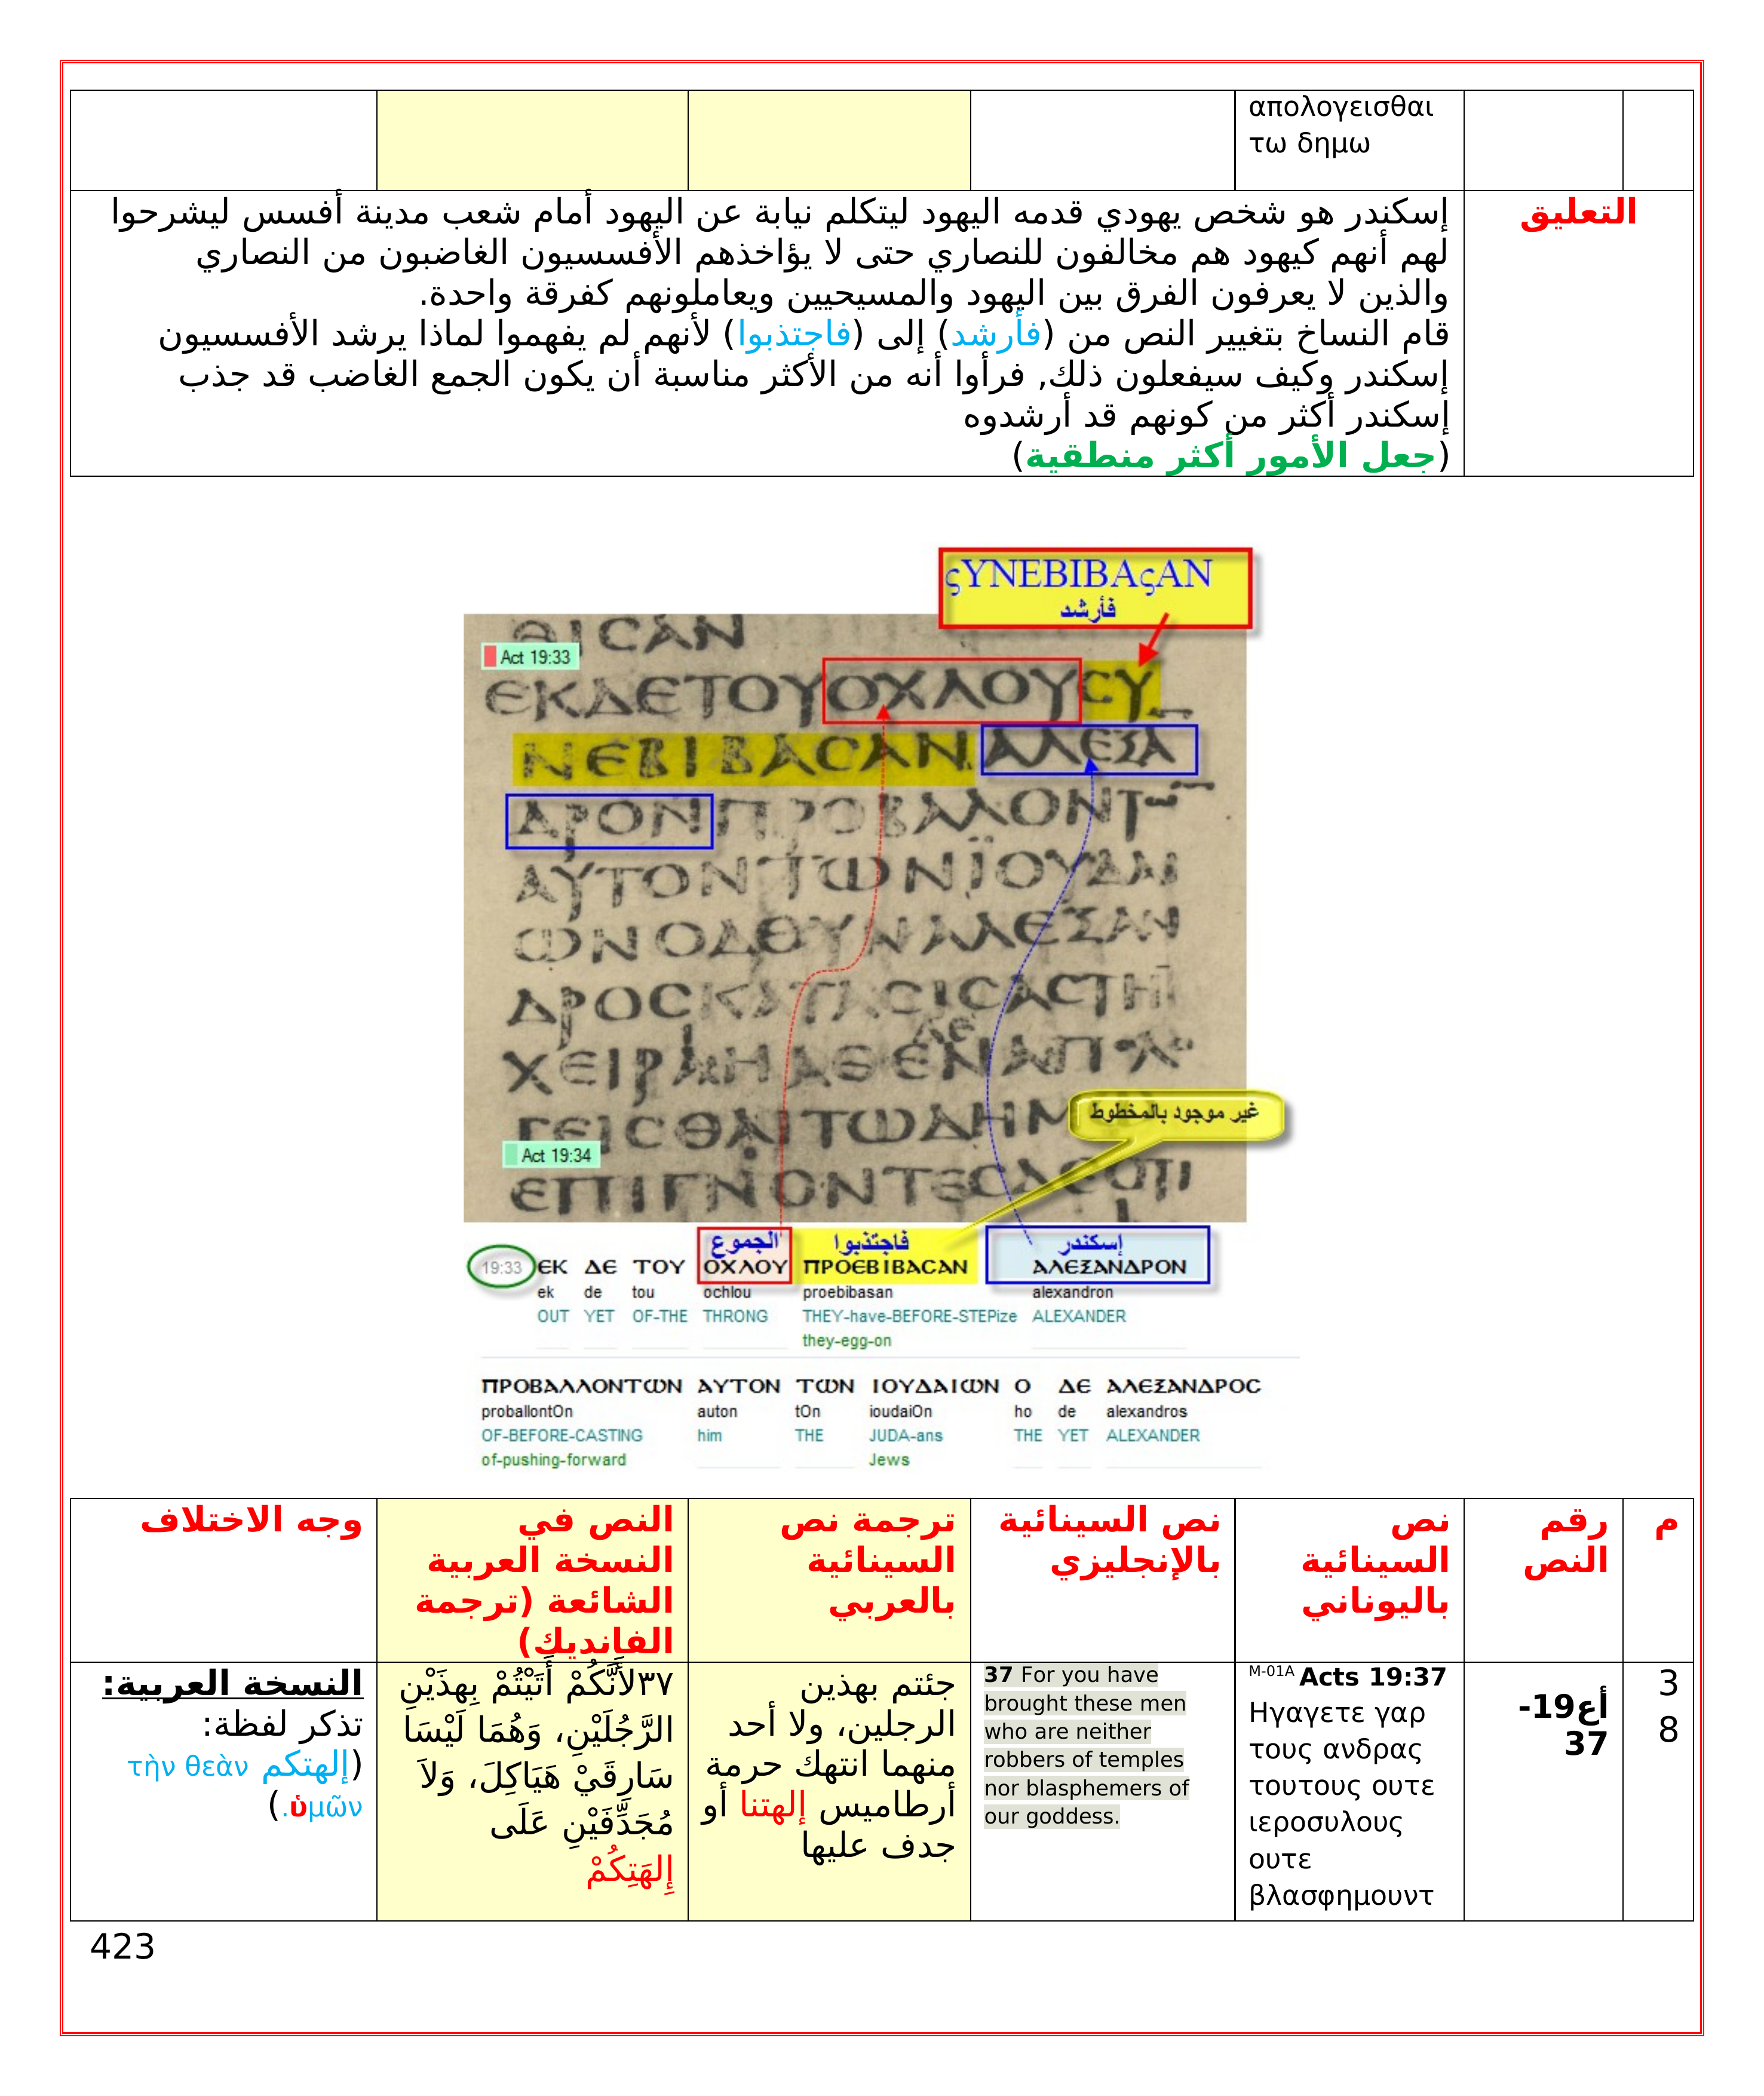 απολογεισθαι
τω δημω
التعليق
إسكندر هو شخص يهودي قدمه اليهود ليتكلم نيابة عن اليهود أمام شعب مدينة أفسس ليشرحوا
لهم أنهم كيهود هم مخالفون للنصاري حتى لا يؤاخذهم الأفسسيون الغاضبون من النصاري
والذين لا يعرفون الفرق بين اليهود والمسيحيين ويعاملونهم كفرقة واحدة.
قام النساخ بتغيير النص من (فأرشد) إلى (فاجتذبوا) لأنهم لم يفهموا لماذا يرشد الأفسسيون
إسكندر وكيف سيفعلون ذلك, فرأوا أنه من الأكثر مناسبة أن يكون الجمع الغاضب قد جذب
إسكندر أكثر من كونهم قد أرشدوه
(جعل الأمور أكثر منطقية)
ςYNEBIBAςAN
فأرشد
ΘΙCΑΝ
Act 19:33
ΕΚΔΕΤΟΥΟΧΛΟΥCΥ
ΝΕΒΙΒΑCΑΝ ΑΛΕΞΑ
ΔΡΟΝΠΡΟΒΑΛΟΝΤ
ΑΥΤΟΝΤΩΝΪΟΥΔΑΙ
ΩΝΟΔΘΥΝΑΛΕΞΑΝ
ΔΡΟCΚΑΤΑCΙCΑCΤΗ
غير موجود بالمخطوط
Act 19:34
ΕΠΙΓΝΟΝΤΕC
الجموع فاجتذبوا إسكندر
19:33 ΕΚ ΔΕ ΤΟΥ ΟΧΛΟΥ ΠΡΟΕΒΙΒΑCΑΝ ΑΛΕΞΑΝΔΡΟΝ
ek de tou ochlou proebibasan alexandron
OUT YET OF-THE THRONG THEY-have-BEFORE-STEPize ALEXANDER
they-egg-on
ΠΡΟΒΑΛΛΟΝΤΩΝ ΑΥΤΟΝ ΤΩΝ ΙΟΥΔΑΙΩΝ Ο ΔΕ ΑΛΕΞΑΝΔΡΟC
proballontOn auton tOn ioudaiOn ho de alexandros
OF-BEFORE-CASTING him THE JUDA-ans THE YET ALEXANDER
of-pushing-forward Jews
م
رقم
النص
نص
السينائية
باليوناني
نص السينائية
بالإنجليزي
ترجمة نص
السينائية
بالعربي
النص في
النسخة العربية
الشائعة (ترجمة
الفانديك)
وجه الاختلاف
3
8
أع19-
37
M-01A Acts 19:37
Ηγαγετε γαρ
τους ανδρας
τουτους ουτε
ιεροσυλους
ουτε
βλασφημουντ
37 For you have
brought these men
who are neither
robbers of temples
nor blasphemers of
our goddess.
جئتم بهذين
الرجلين، ولا أحد
منهما انتهك حرمة
أرطاميس إلهتنا أو
جدف عليها
٣٧لأَنَّكُمْ أَتَيْتُمْ بِهذَيْنِ
الرَّجُلَيْنِ، وَهُمَا لَيْسَا
سَارِقَيْ هَيَاكِلَ، وَلاَ
مُجَدِّفَيْنِ عَلَى
إِلهَتِكُمْ
النسخة العربية:
تذكر لفظة:
(إلهتكم τὴν θεὰν
ὑμῶν.)
423